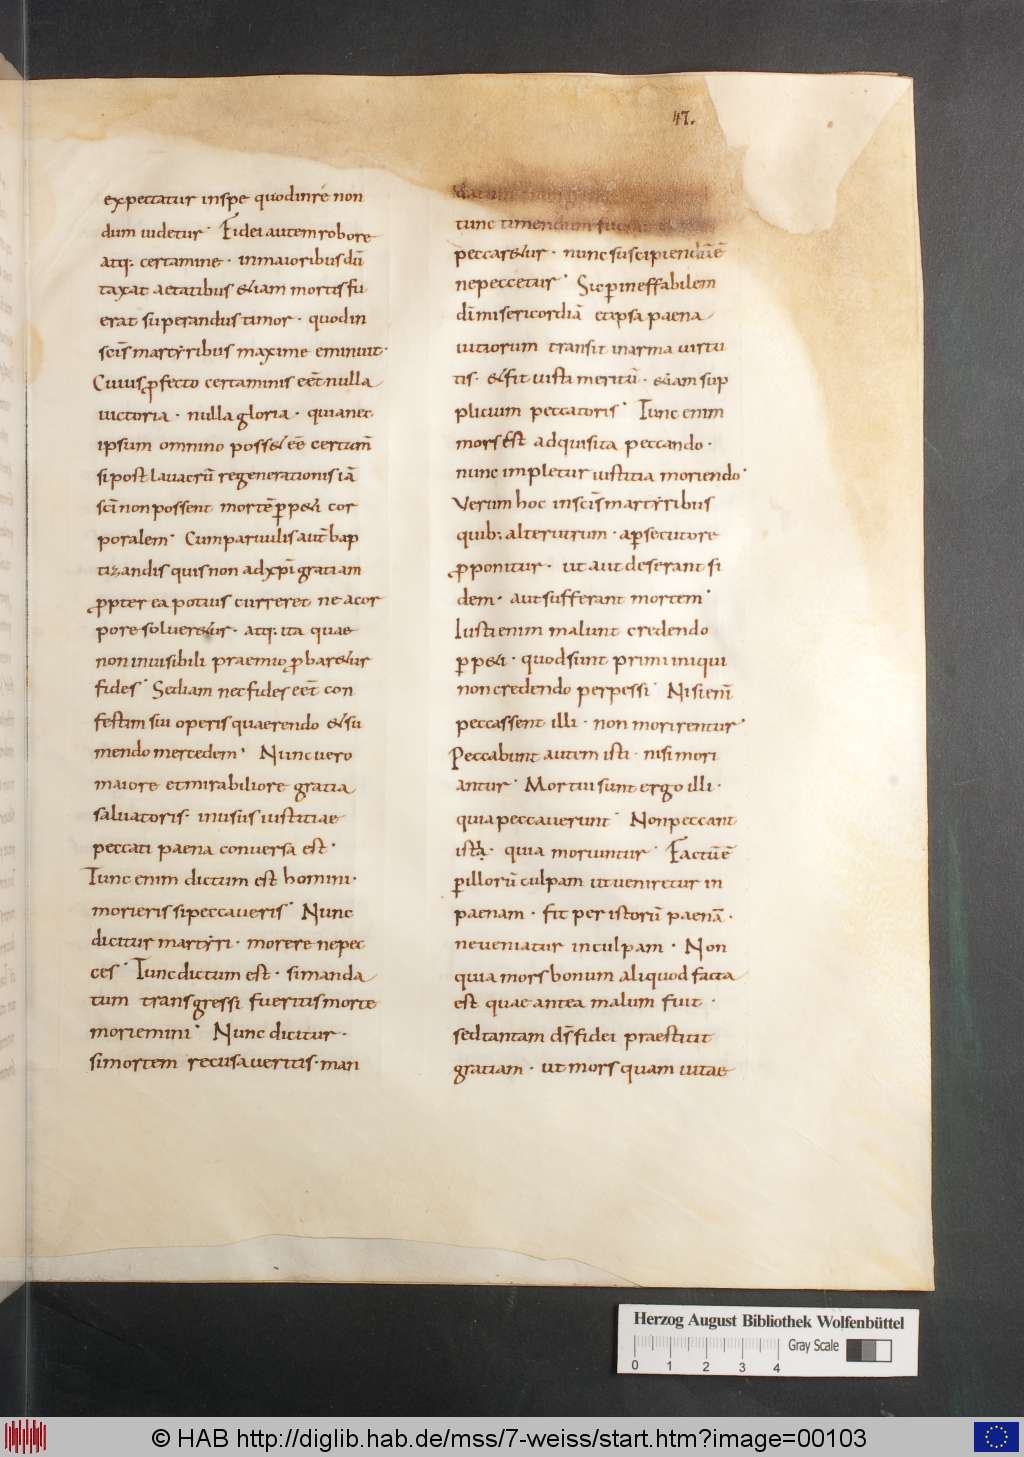 47.
expectatur inspe quodinré non
dum uidetur· Fidei autem robore
atq; certamine· inmaioribus dū
taxat aetatibus &iam mortis fu
erat superandus timor· quodin
sc̄is martyribus maxime eminuit·
Cuius ꝓfecto certaminis eēt nulla
uictoria· nulla gloria· quia nec
ipsum omnino poss& eē certam̄
si post lauacrū regenerationis iā
sc̄i non possent mortē ꝑp&i cor
poralem· Cum paruulis aut̄ bap
tizandis quis non adxp̄i gratiam
ꝓpter ea potius curreret ne a cor
pore soluer&ur· atq; ita quae
non inuisibili praemio ꝓbar&ur
fides· Sed iam nec fides eēt con
festim sui operis quaerendo &su
mendo mercedem· Nunc uero
maiore etmirabiliore gratia
saluatoris· inusus iustitiae
peccati paena conuersa est·
Tunc enim dictum est homini·
morieris si peccaueris· Nunc
dicitur martyri· morere ne pec
ces· Tunc dictum est· si manda
tum transgressi fueritis morte
moriemini· Nunc dicitur·
si mortem recusaueritis· man
tunc timendum
peccar&ur· nunc suscipiendū ē
ne peccetur· Sic ꝑ ineffabilem
dī misericordiā etipsa paena
uitiorum transit inarma uirtu
tis· &fit iusti meritū· &iam sup
plicium peccatoris· Tunc enim
mors est adquisita peccando·
nunc impletur iustitia moriendo·
Verum hoc insc̄is martyribus
quib; alterutrum· aꝑsecutore
ꝓponitur· ut aut deserant fi
dem· aut sufferant mortem·
Iusti enim malunt credendo
ꝑp&i· quod sunt primi iniqui
non credendo perpessi· Nisi enī
peccassent illi· non morirentur·
Peccabunt autem isti· nisi mori
antur· Mortui sunt ergo illi·
quia peccauerunt· Non peccant
isti· quia moriuntur· Factū ē
ꝑ illorū culpam ut ueniretur in
paenam· fit per istorū paenā·
ne ueniatur inculpam· Non
quia mors bonum aliquod facta
est quae antea malum fuit·
sed tantam d̄s fidei praestitit
gratiam· ut mors quam uitae
Herzog August Bibliothek Wolfenbüttel
Gray Scale
0 1 2 3 4
© HAB http://diglib.hab.de/mss/7-weiss/start.htm?image=00103